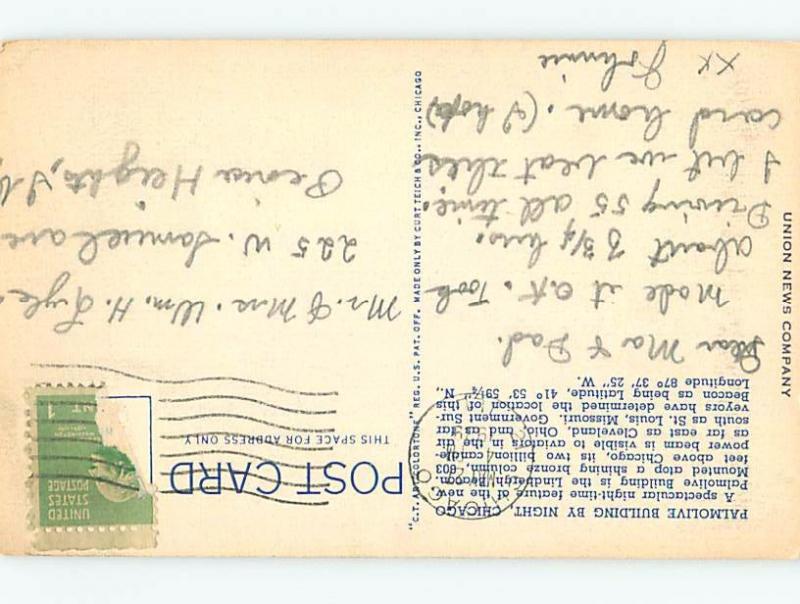 PALMOLIVE BUILDING BY NIGHT, CHICAGO
A spectacular night-time feature of the new
Palmolive Building is the Lindbergh Beacon.
Mounted atop a shining bronze column, 603
feet above Chicago, its two billion candle-
power beam is visible to aviators in the air
as far east as Cleveland, Ohio and as far
south as St. Louis, Missouri. Government Sur-
veyors have determined the location of this
Beacon as being Latitude, 41° 53' 59¼" N.,
Longitude 87° 37' 25" W.
Dear Ma & Dad.
Made it O.K. Took
about 3 3/4 hrs.
Driving 55 all time.
I bet we beat this
card home. (I hope)
Johnnie
XX
UNION NEWS COMPANY
"C.T. ART-COLORTONE" REG. U.S. PAT. OFF. MADE ONLY BY CURT TEICH & CO., INC., CHICAGO
POST CARD
THIS SPACE FOR ADDRESS ONLY
UNITED
STATES
POSTAGE
1
CHICAGO
Mr. & Mrs. Wm. H. Lyle
225 W. Samuel ave
Peoria Heights, Ill